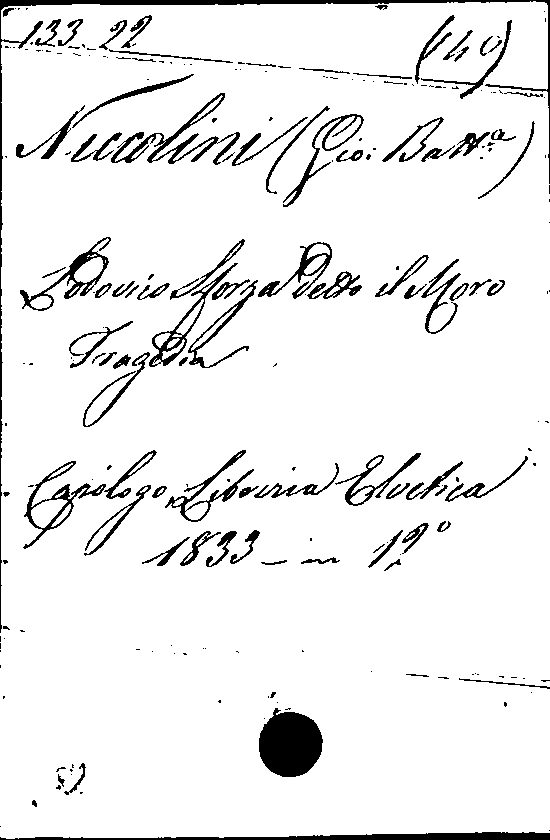 133. 22
(40)
Niccolini (Gio: Batt.a)
Lodovico Sforza detto il Moro
Tragedia
Capolago, Libreria Elvetica
1833 - in 12°